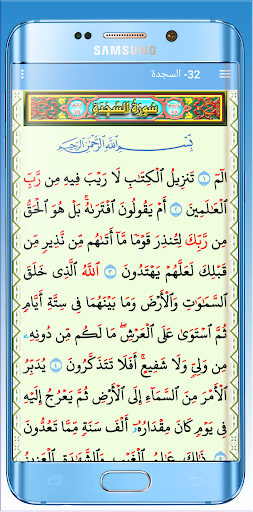 SAMSUNG
32- السجدة
سورة السجدة
بِسْمِ ٱللَّهِ ٱلرَّحْمَٰنِ ٱلرَّحِيمِ
الٓمٓ ١ تَنزِيلُ ٱلْكِتَٰبِ لَا رَيْبَ فِيهِ مِن رَّبِّ
ٱلْعَٰلَمِينَ ٢ أَمْ يَقُولُونَ ٱفْتَرَىٰهُ بَلْ هُوَ ٱلْحَقُّ
مِن رَّبِّكَ لِتُنذِرَ قَوْمًا مَّآ أَتَىٰهُم مِّن نَّذِيرٍ مِّن
قَبْلِكَ لَعَلَّهُمْ يَهْتَدُونَ ٣ ٱللَّهُ ٱلَّذِى خَلَقَ
ٱلسَّمَٰوَٰتِ وَٱلْأَرْضَ وَمَا بَيْنَهُمَا فِى سِتَّةِ أَيَّامٍ
ثُمَّ ٱسْتَوَىٰ عَلَى ٱلْعَرْشِ مَا لَكُم مِّن دُونِهِۦ
مِن وَلِىٍّ وَلَا شَفِيعٍ أَفَلَا تَتَذَكَّرُونَ ٤ يُدَبِّرُ
ٱلْأَمْرَ مِنَ ٱلسَّمَآءِ إِلَى ٱلْأَرْضِ ثُمَّ يَعْرُجُ إِلَيْهِ
فِى يَوْمٍ كَانَ مِقْدَارُهُۥٓ أَلْفَ سَنَةٍ مِّمَّا تَعُدُّونَ
٥ ذَٰلِكَ عَٰلِمُ ٱلْغَيْبِ وَٱلشَّهَٰدَةِ ٱلْعَزِيزُ